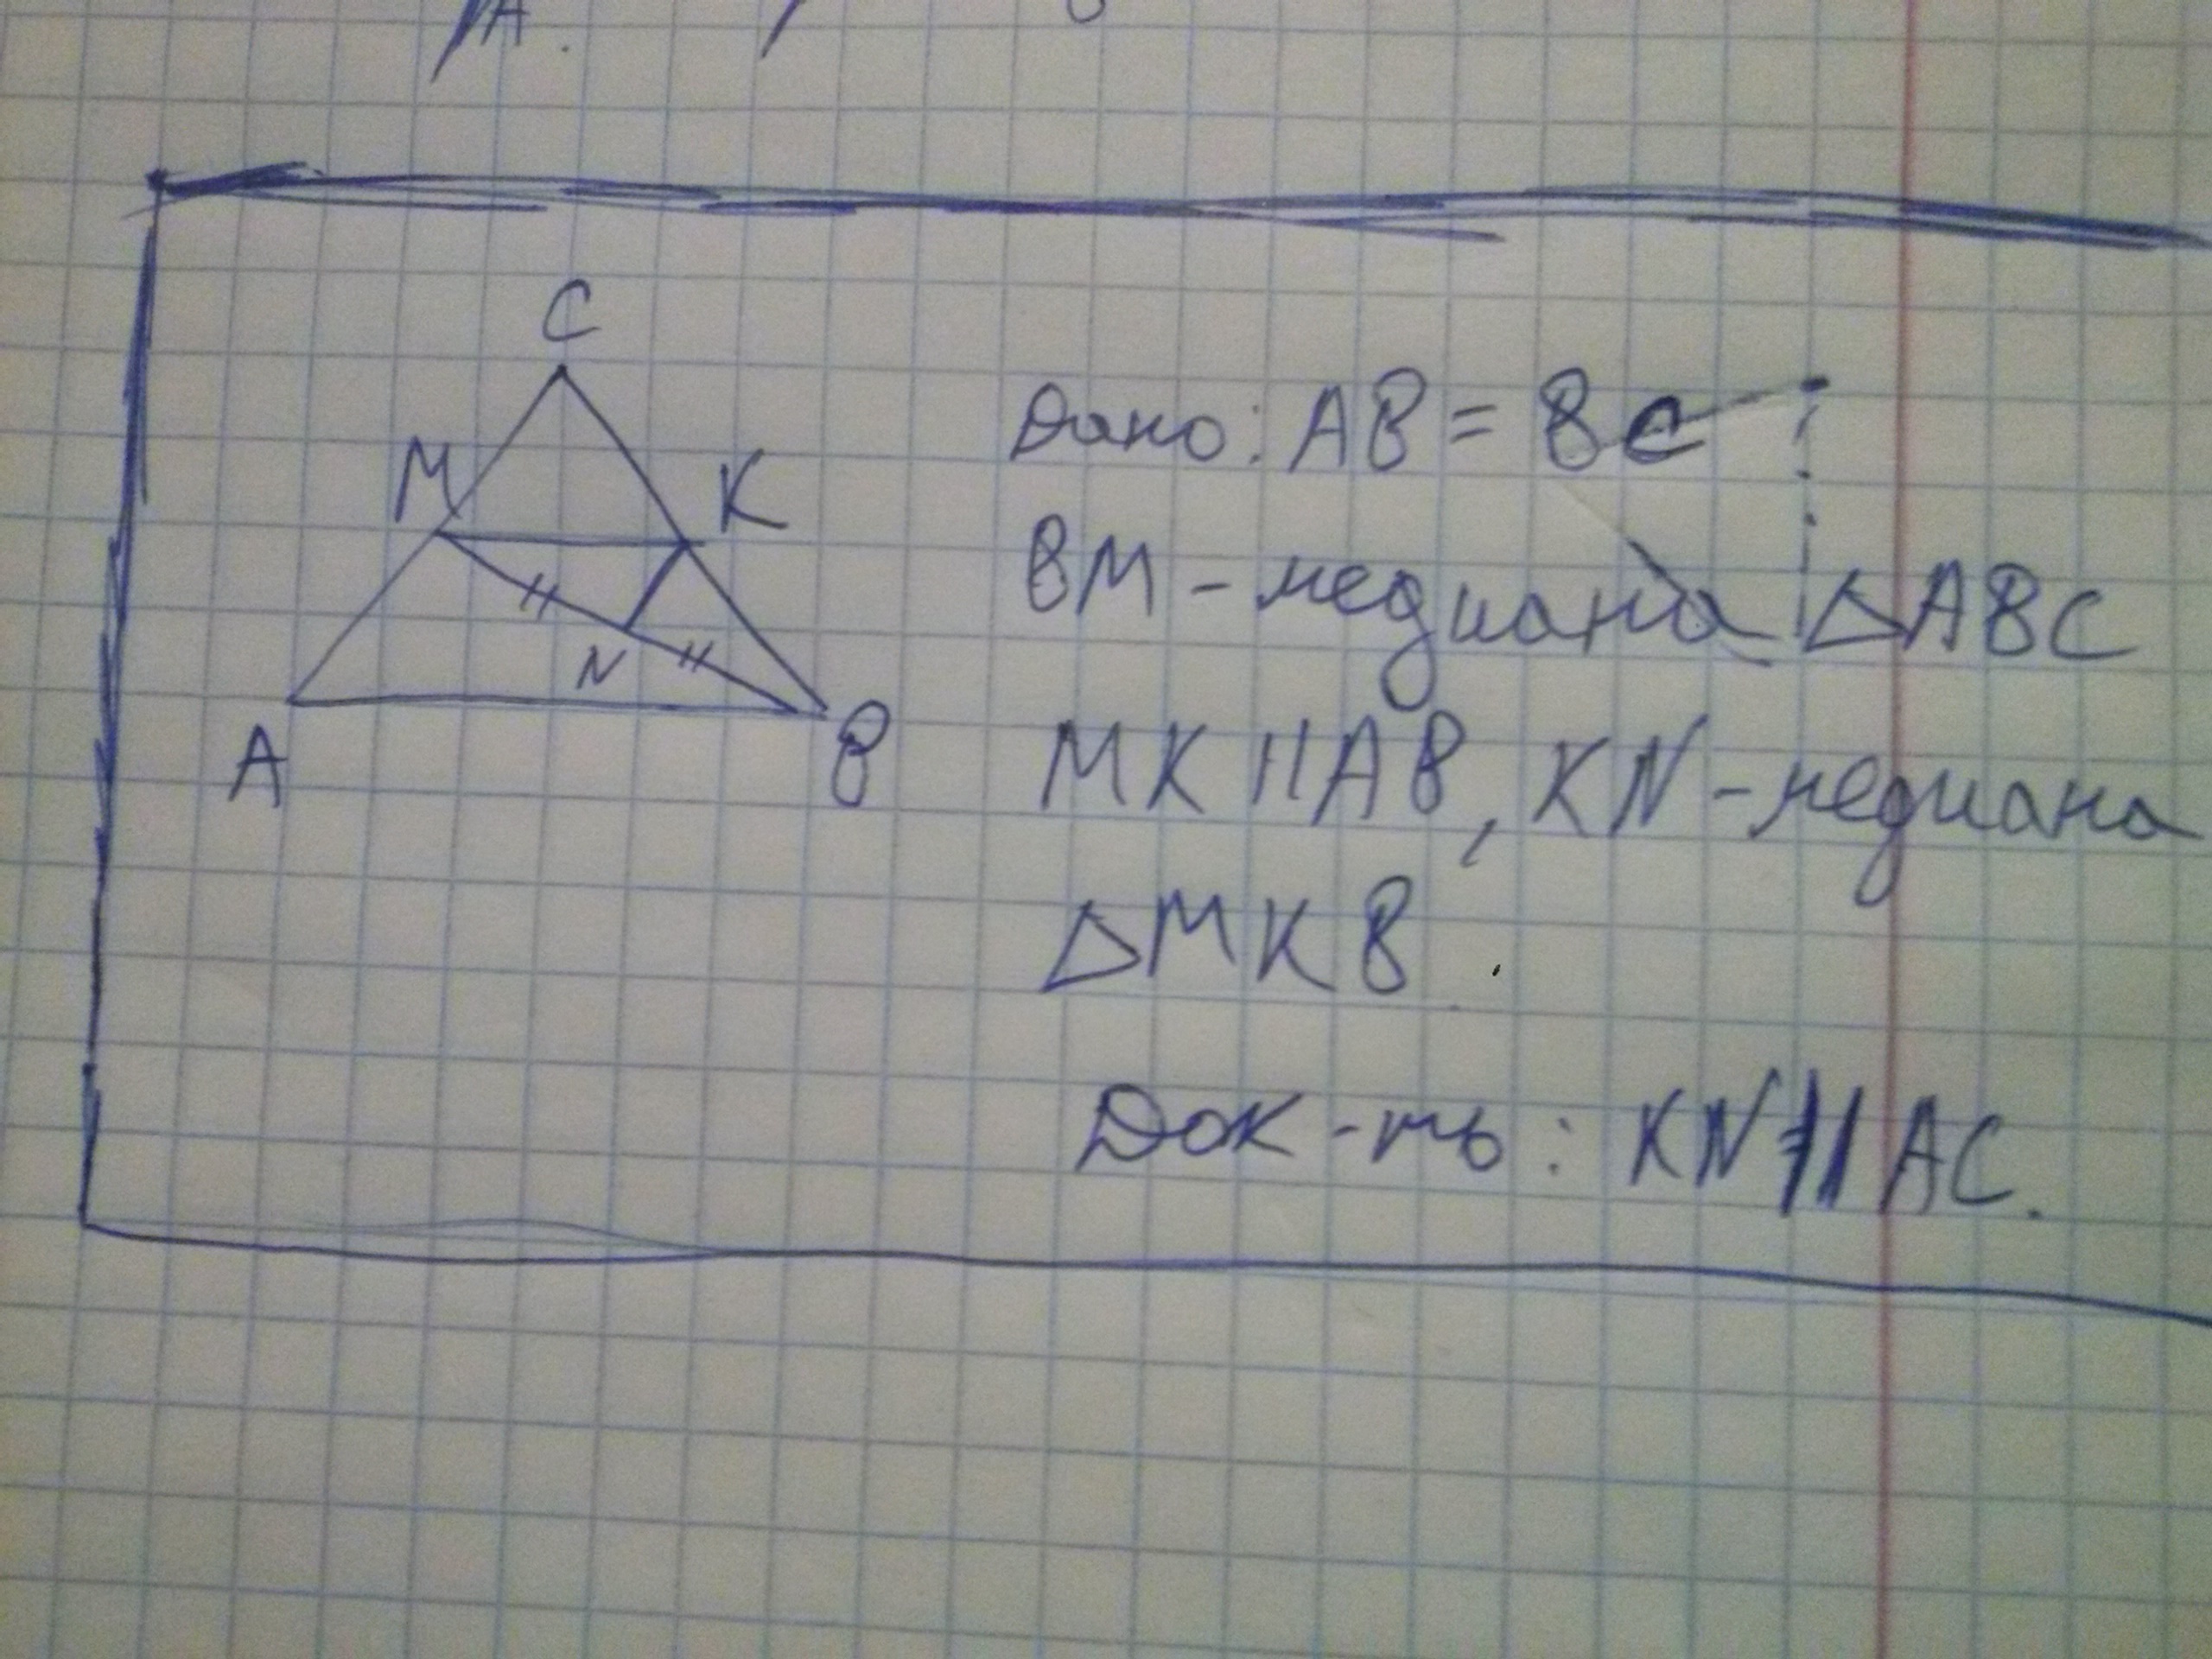 A.
C
M
K
N
A
B
Дано: AB = BC
BM - медиана △ABC
MK || AB, KN - медиана
△MKB.
Док-ть: KN || AC.